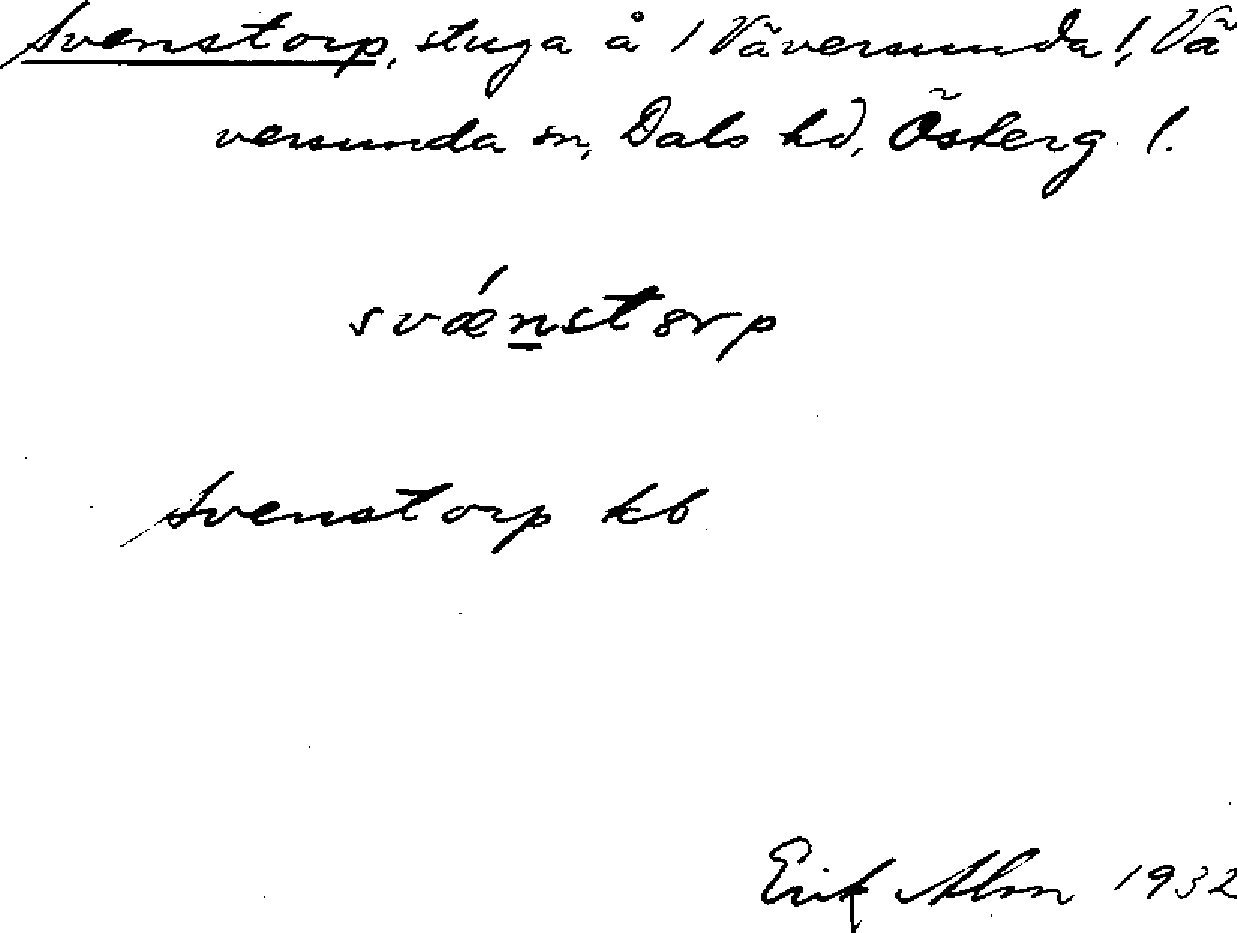 Svenstorp, stuga å /Väversunda/, Vä
versunda sn, Dals hd, Österg. l.
svǽnstorp
Svenstorp kb
Erik Alm 1932